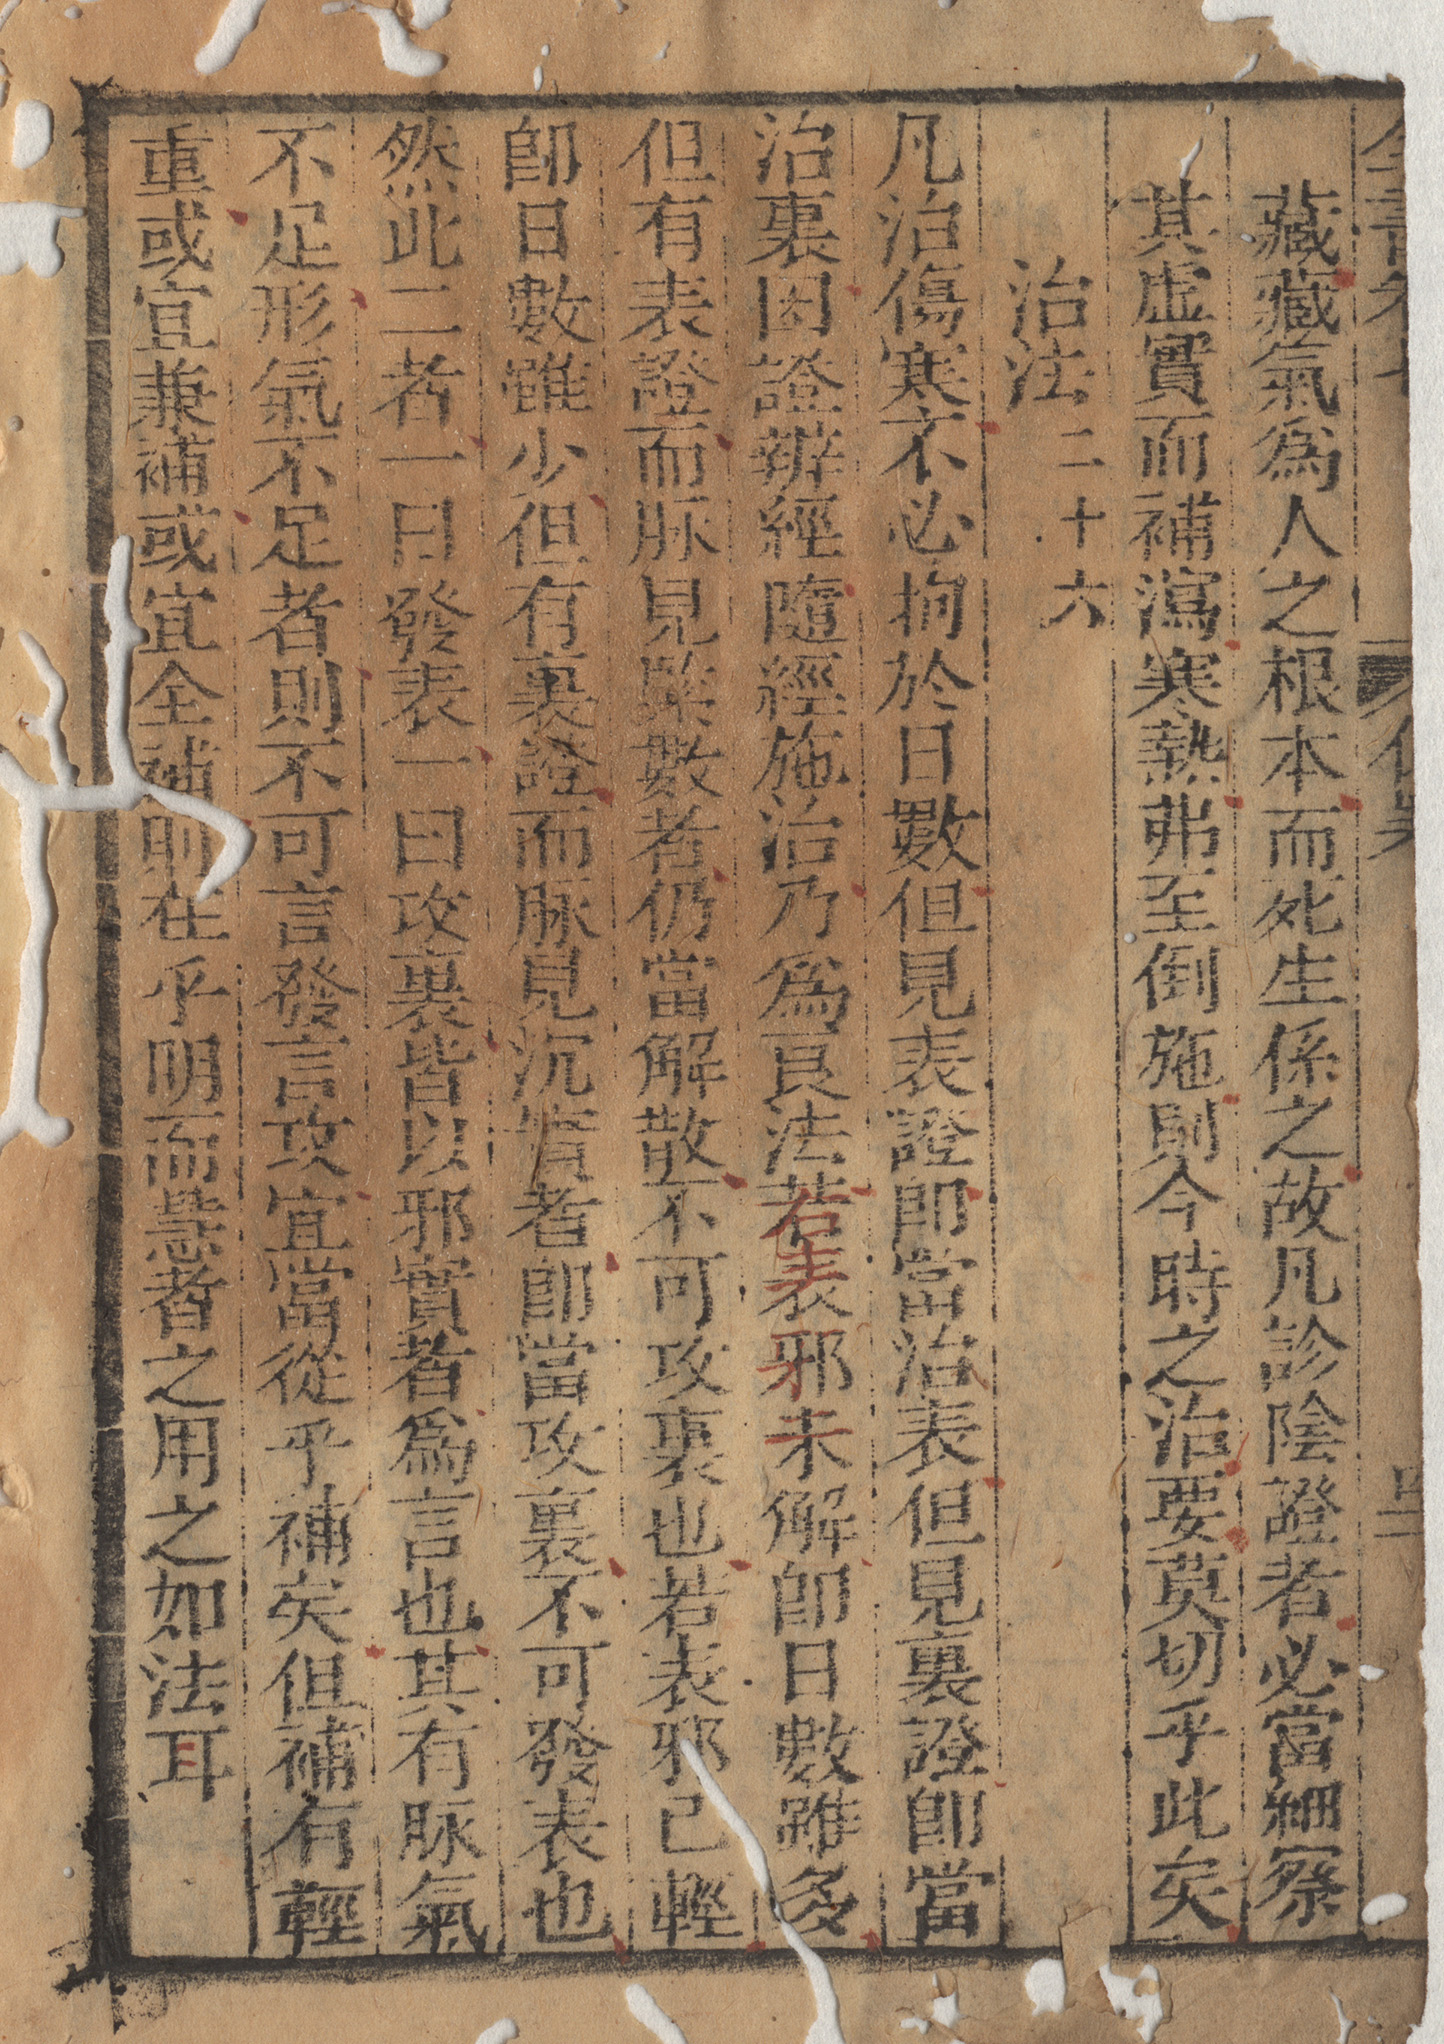 藏藏氣爲人之根本而死生係之故凡診陰證者必當細察
其虛實而補瀉寒熱弗至倒施則今時之治要莫切乎此矣
治法二十六
凡治傷寒不必拘於日數但見表證卽當治表但見裏證卽當
治裏因證辨經隨經施治乃爲良法若表邪未解卽日數雖多
但有表證而脉見緊數者仍當解散不可攻裏也若表邪已輕
卽日數雖少但有裏證而脉見沉實者卽當攻裏不可發表也
然此二者一曰發表一曰攻裏皆以邪實者爲言也其有脉氣
不足形氣不足者則不可言發言攻宜當從乎補矣但補有輕
重或宜兼補或宜全補則在乎明而慧者之用之如法耳